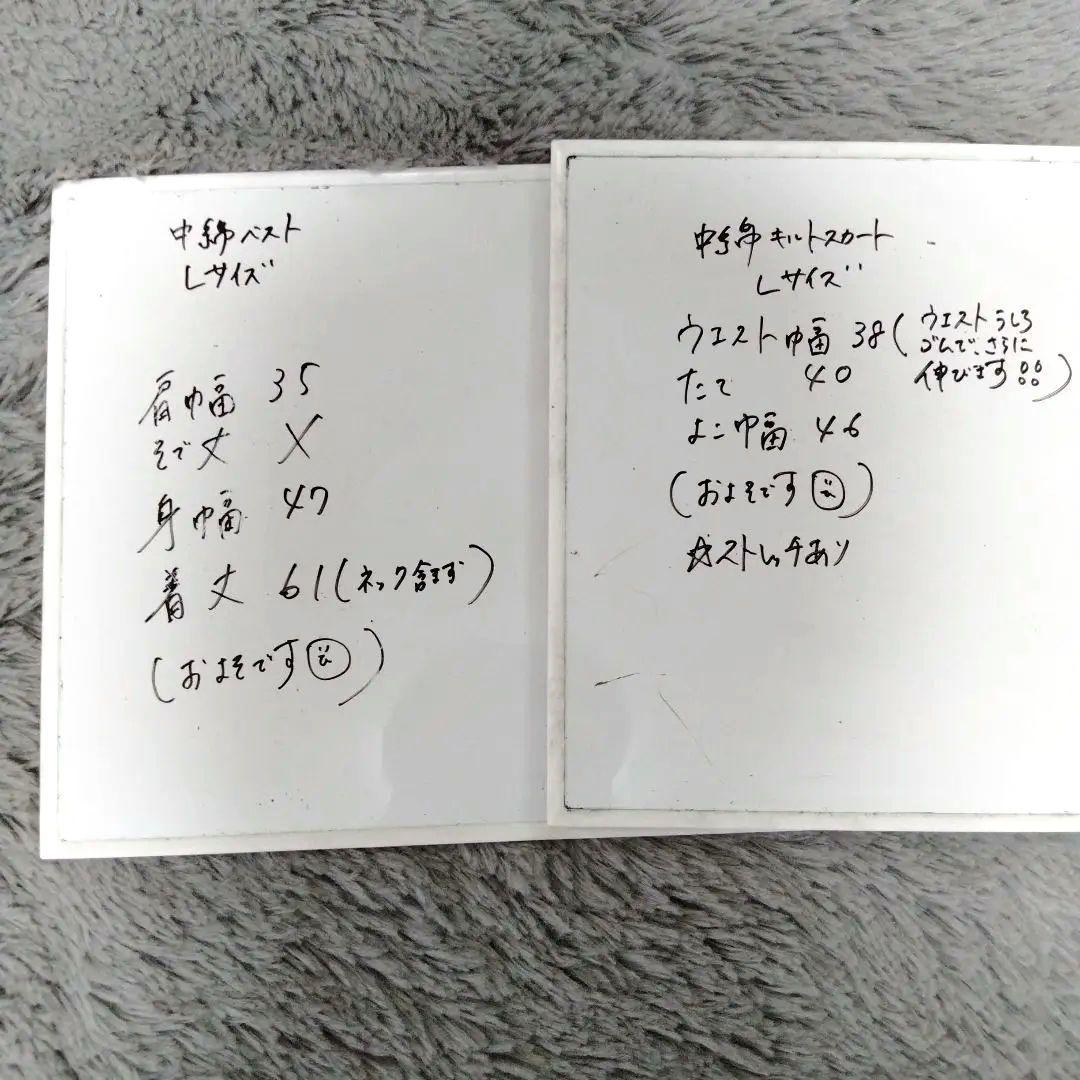 中綿ベスト
Lサイズ
肩幅 35
そで丈 X
身幅 47
着丈 61(ネック含まず)
(およそです)
中綿キルトスカート
Lサイズ
ウエスト幅 38(ウエストうしろ
ゴムで、さらに
伸びます!!)
たて 40
よこ巾畐 46
(およそです)
☆ストレッチあり